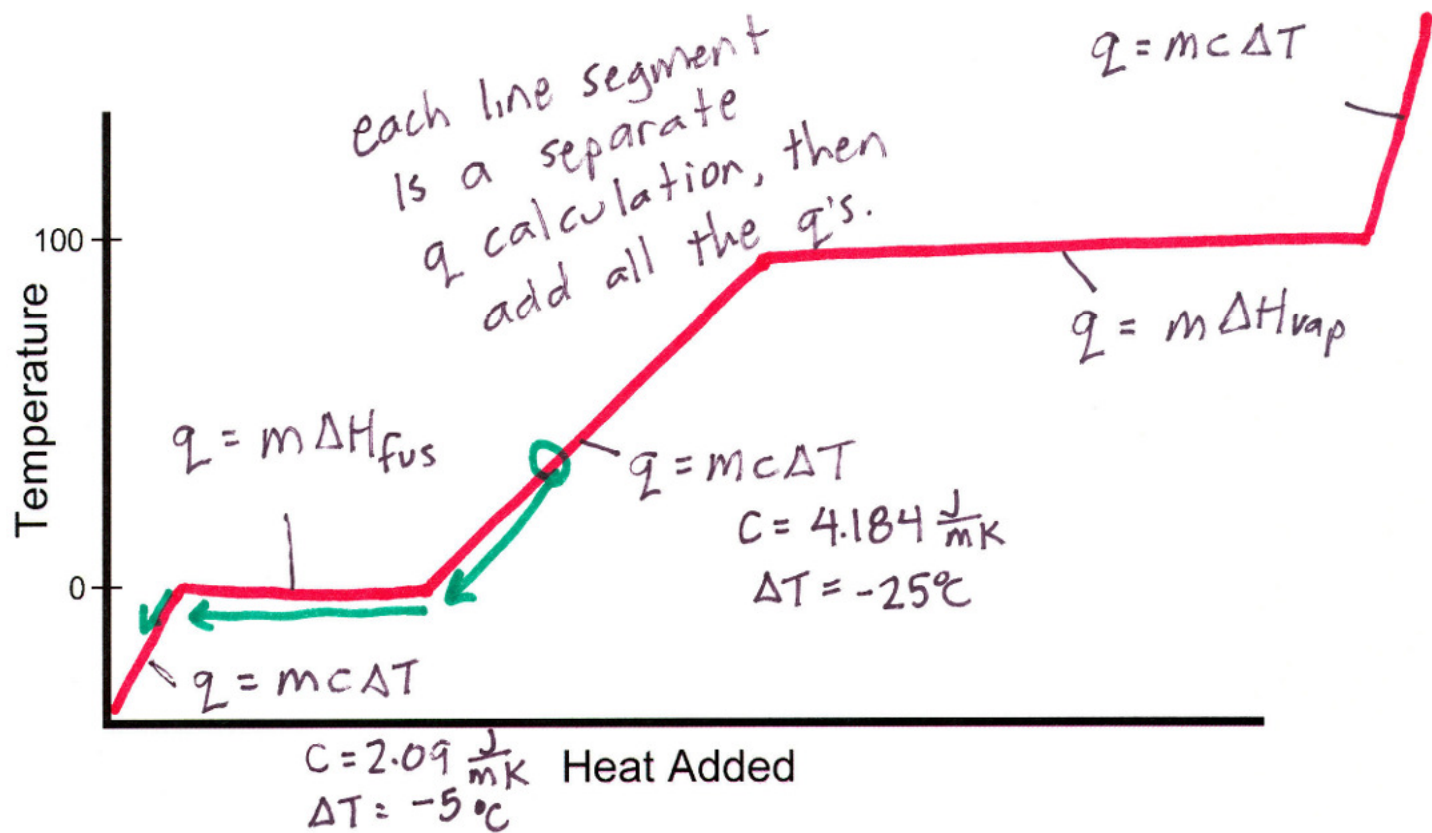 q = mcΔT
each line segment
is a separate
q calculation, then
add all the q's.
100
q = mΔHvap
Temperature
q = mΔHfus
q = mcΔT
C = 4.184 J/mK
ΔT = -25°C
0
q = mcΔT
C = 2.09 J/mK
ΔT = -5°C
Heat Added